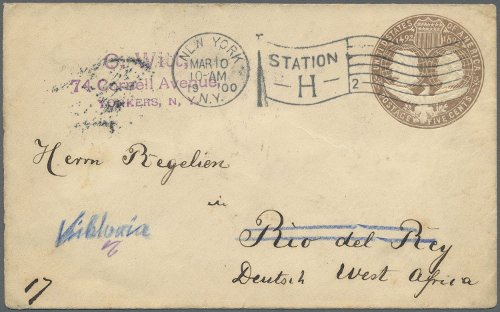 C. Witt,
74 Cornell Avenue,
YONKERS, N. Y.
NEW YORK
MAR 10
10-AM
1900
N.Y.
STATION
H
2
UNITED STATES OF AMERICA
1492
POSTAGE FIVE CENTS
Herrn Regelien
in
Viktoria
Rio del Rey
Deutsch West Africa
17